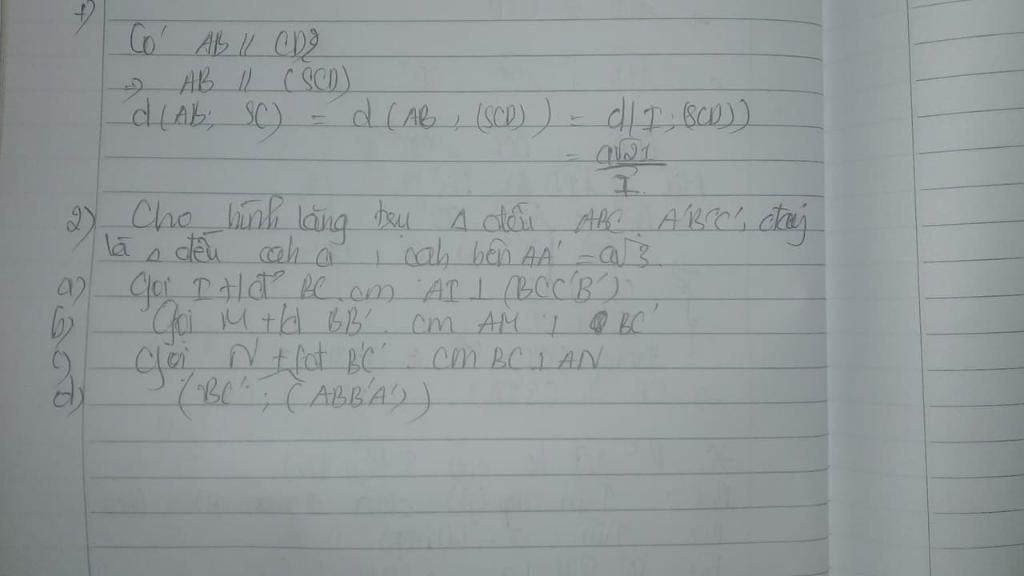 f)
Có AB // CD
=> AB // (SCD)
d(AB; SC) = d(AB, (SCD)) = d(I; (SCD))
= a√21
2) Cho hình lăng trụ Δ đều ABC. A'B'C', đáy
là Δ đều cạh a, cạh bên AA' = a√3
a) Gọi I + là t° BC. cm AI ⊥ (BCC'B')
b) Gọi M BB'. cm AM ⊥ BC'
c) Gọi N B'C' cm BC ⊥ AN
d) (BC'; (ABB'A'))